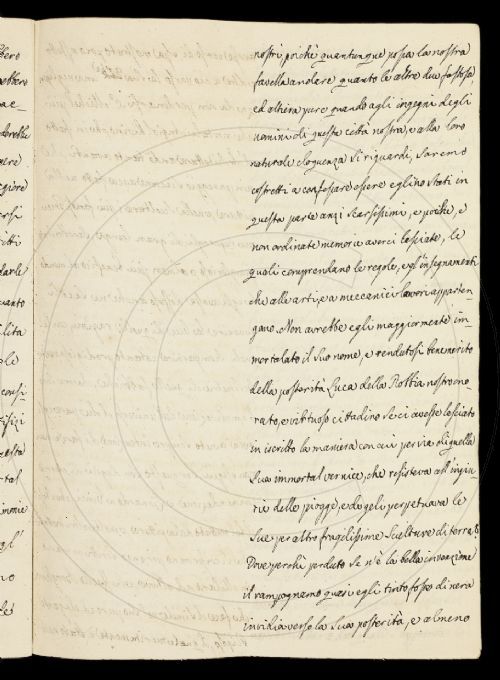 nostri, poichè quantunque possa la nostra
favella andare quanto le altre due fastosa
ed altiera pure quando agli ingegni degli
uomini di questa città nostra, e alla loro
naturale eloquenza si riguardi, saremo
costretti a confessare essere eglino stati in
questa parte anzi scarsissimi, e poche, e
non ordinate memorie averci lasciate, le
quali comprendano le regole, e gl'insegnamenti
che alle arti, e a meccanici lavori apparten-
gano. Non avrebbe egli maggiormente im-
mortalato il suo nome, e rendutosi benemerito
della posterità Luca della Robbia nostro ono-
rato, e virtuoso cittadino se ci avesse lasciato
in iscritto la maniera con cui per via di quella
sua immortal vernice, che resisteva all'ingiu-
rie delle piogge, e de geli perpetuava le
sue per altro fragilissime sculture di terra?
Dove perchè perduto se n'è la bella invenzione
il rampognamo quasi egli tinto fosse di nera
invidia verso la sua posterità, e almeno